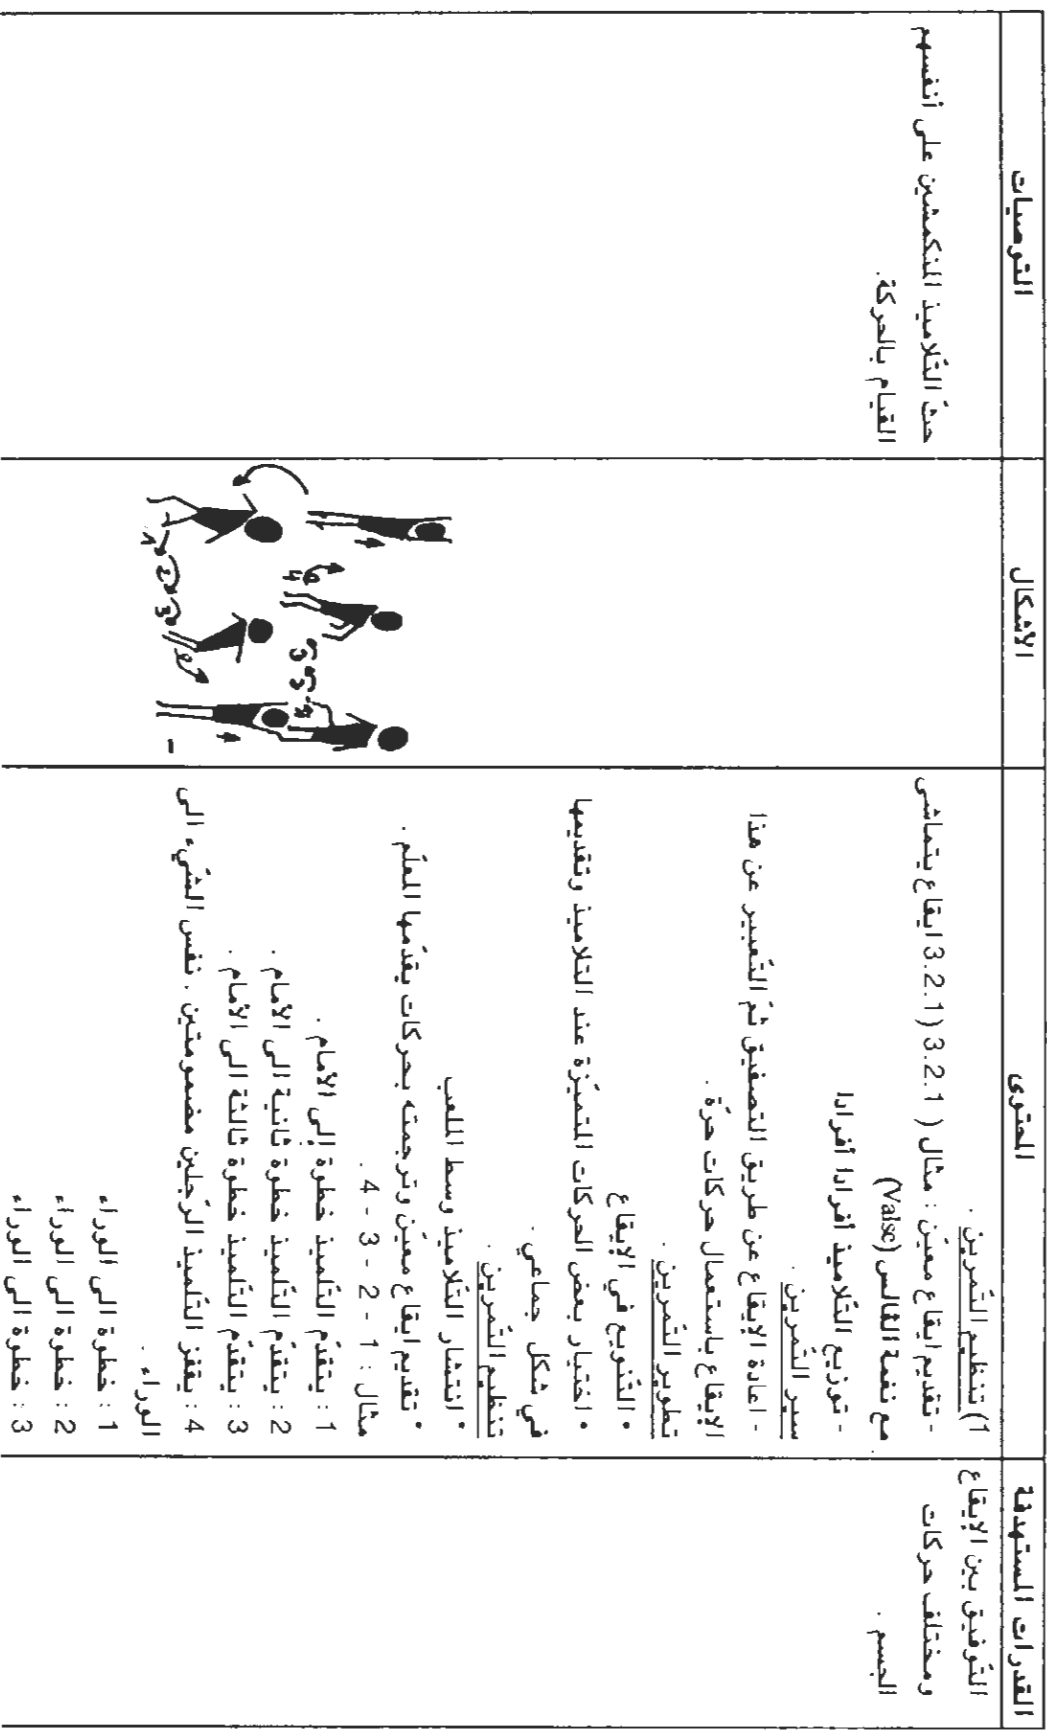 القدرات المستهدفة
المحتوى
الأشكال
التوصيات
التّوفيق بين الإيقاع
ومختلف حركات
الجسم .
1) تنظيم التّمرين .
- تقديم ايقاع معيّن : مثال ( 3.2.1 (3.2.1 ايقاع يتماشى
مع نغمة الفالس (Valse)
- توزيع التّلاميذ أفرادا أفرادا
سير التّمرين .
- اعادة الإيقاع عن طريق التصفيق ثمّ التّعبير عن هذا
الإيقاع باستعمال حركات حرّة .
تطوير التّمرين .
• التّنويع في الإيقاع
• اختيار بعض الحركات المتميّزة عند التلاميذ وتقديمها
في شكل جماعي .
تنظيم التّمرين .
• انتشار التّلاميذ وسط الملعب
• تقديم ايقاع معيّن وترجمته بحركات يقدّمها المعلّم .
مثال : 1 - 2 - 3 - 4 .
1 : يتقدّم التّلميذ خطوة إلى الأمام .
2 : يتقدّم التّلميذ خطوة ثانية الى الأمام .
3 : يتقدّم التّلميذ خطوة ثالثة الى الأمام .
4 : يقفز التّلميذ الرّجلين مضمومتين . نفس الشّيء الى
الوراء .
1 : خطوة الى الوراء
2 : خطوة الى الوراء
3 : خطوة الى الوراء
حثّ التّلاميذ المنكمشين على أنفسهم
القيام بالحركة.